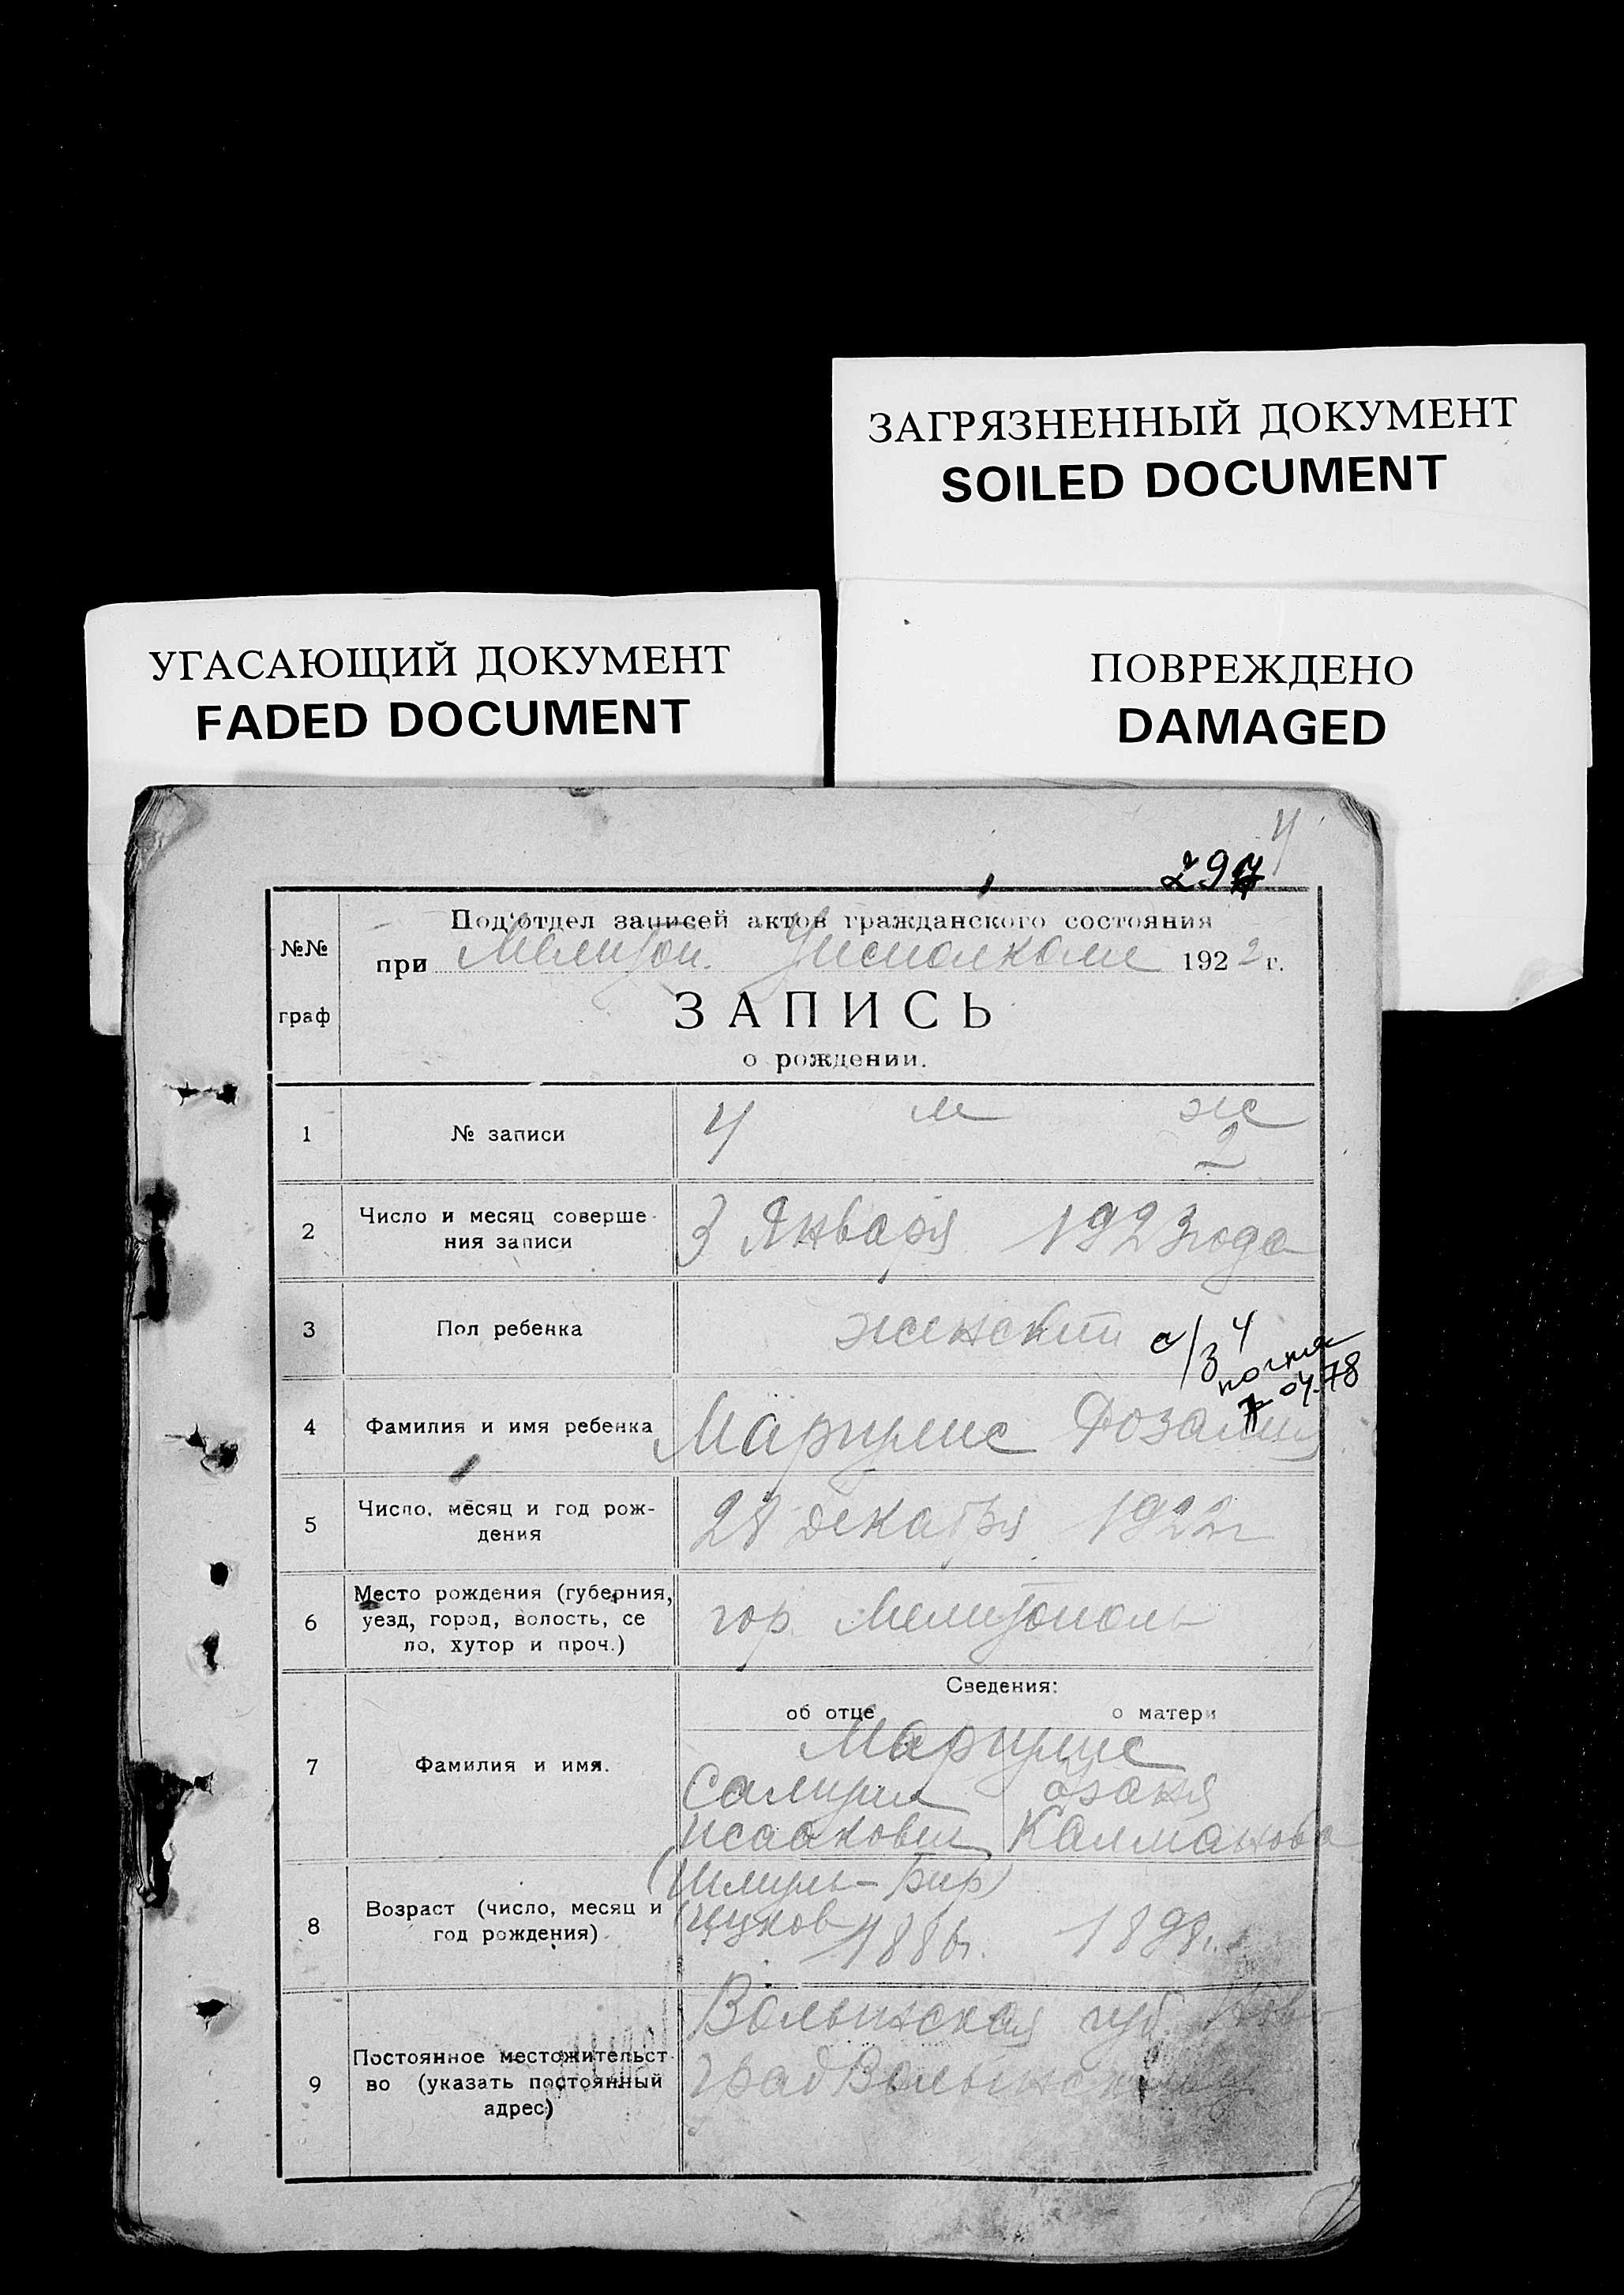 ЗАГРЯЗНЕННЫЙ ДОКУМЕНТ
SOILED DOCUMENT
УГАСАЮЩИЙ ДОКУМЕНТ
FADED DOCUMENT
ПОВРЕЖДЕНО
DAMAGED
4
297
№№
граф
Под'отдел записей актов гражданского состояния
при Мелитоп. Уисполкоме 1922 г.
ЗАПИСЬ
о рождении.
1 № записи 4 м ж
2
2 Число и месяц соверше-
ния записи 3 Января 1923 года
3 Пол ребенка женский
4
04.78
4 Фамилия и имя ребенка Маргулис Розалия
5 Число, месяц и год рож-
дения 28 декабря 1922 г
6 Место рождения (губерния,
уезд, город, волость, се
ло, хутор и проч.) гор. Мелитополь
Сведения:
об отце о матери
7 Фамилия и имя. Маргулис
Самуил
Исаакович Калманова
8 Возраст (число, месяц и
год рождения) (Шмуль-Бер
Ицков) 1886 г. 1898 г.
9 Постоянное местожительст
во (указать постоянный
адрес) Волынская губ. Ново
градВолынский у.